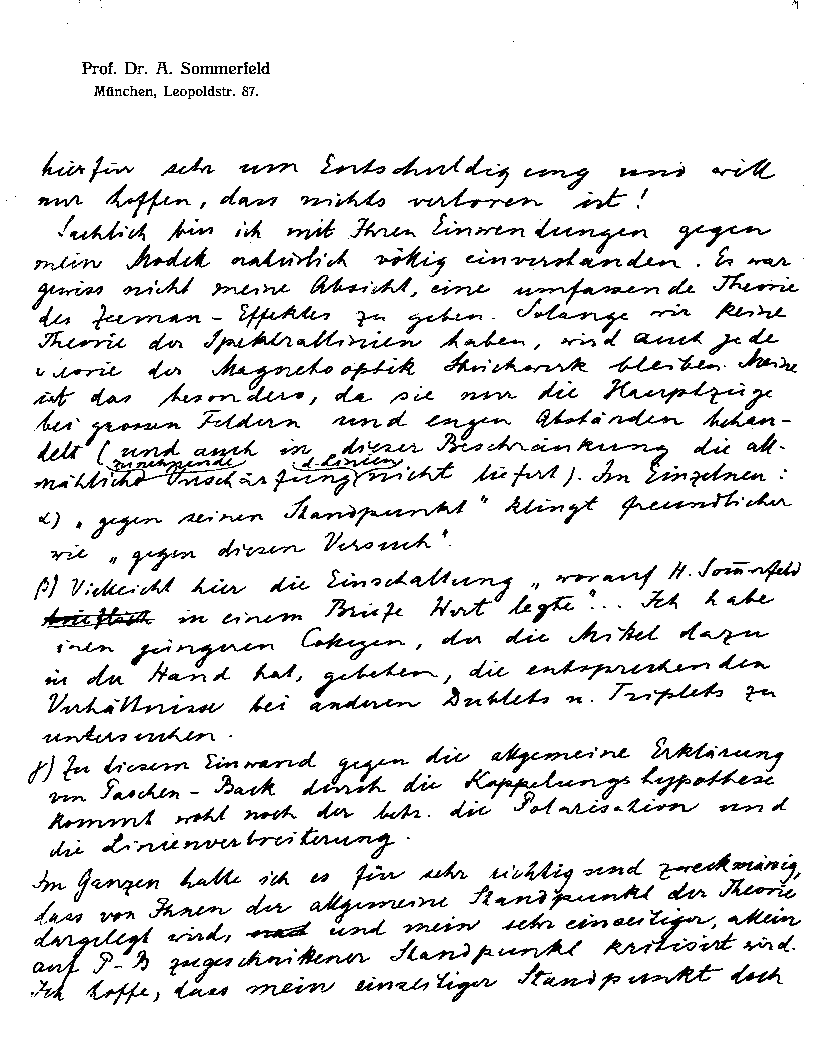 Prof. Dr. A. Sommerfeld
München, Leopoldstr. 87.
hierfür sehr um Entschuldigung und will
nur hoffen, dass nichts verloren ist!
Sachlich bin ich mit Ihren Einwendungen gegen
mein Modell natürlich völlig einverstanden. Es war
gewiss nicht meine Absicht, eine umfassende Theorie
des Zeeman-Effektes zu geben. Solange wir keine
Theorie der Spektrallinien haben, wird auch jede
Theorie der Magnetooptik Stückwerk bleiben. Meine
ist das besonders, da sie nur die Hauptzüge
bei grossen Feldern und engen Abständen behan-
delt (und auch in dieser Beschränkung die all-
zunehmende d. Linien
mähliche Unschärfung nicht liefert). Im Einzelnen:
α) „gegen seinen Standpunkt" klingt freundlicher
wie „gegen diesen Versuch".
β) Vielleicht hier die Einschaltung „worauf H. Som̄erfeld
brieflich in einem Briefe Wert legte"... Ich habe
jüngeren Collegen, der die Mittel dazu
in der Hand hat, gebeten, die entsprechenden
Verhältnisse bei anderen Dublets u. Triplets zu
untersuchen.
γ) Zu diesem Einwand gegen die allgemeine Erklärung
von Paschen-Back durch die Koppelungshypothese
kommt wohl noch der betr. die Polarisation und
die Linienverbreiterung.
Im Ganzen halte ich es für sehr richtig und zweckmässig,
dass von Ihnen der allgemeine Standpunkt der Theorie
dargelegt wird, und mein sehr einseitiger, allein
auf P-B zugeschnittener Standpunkt kritisirt wird.
Ich hoffe, dass mein einseitiger Standpunkt doch